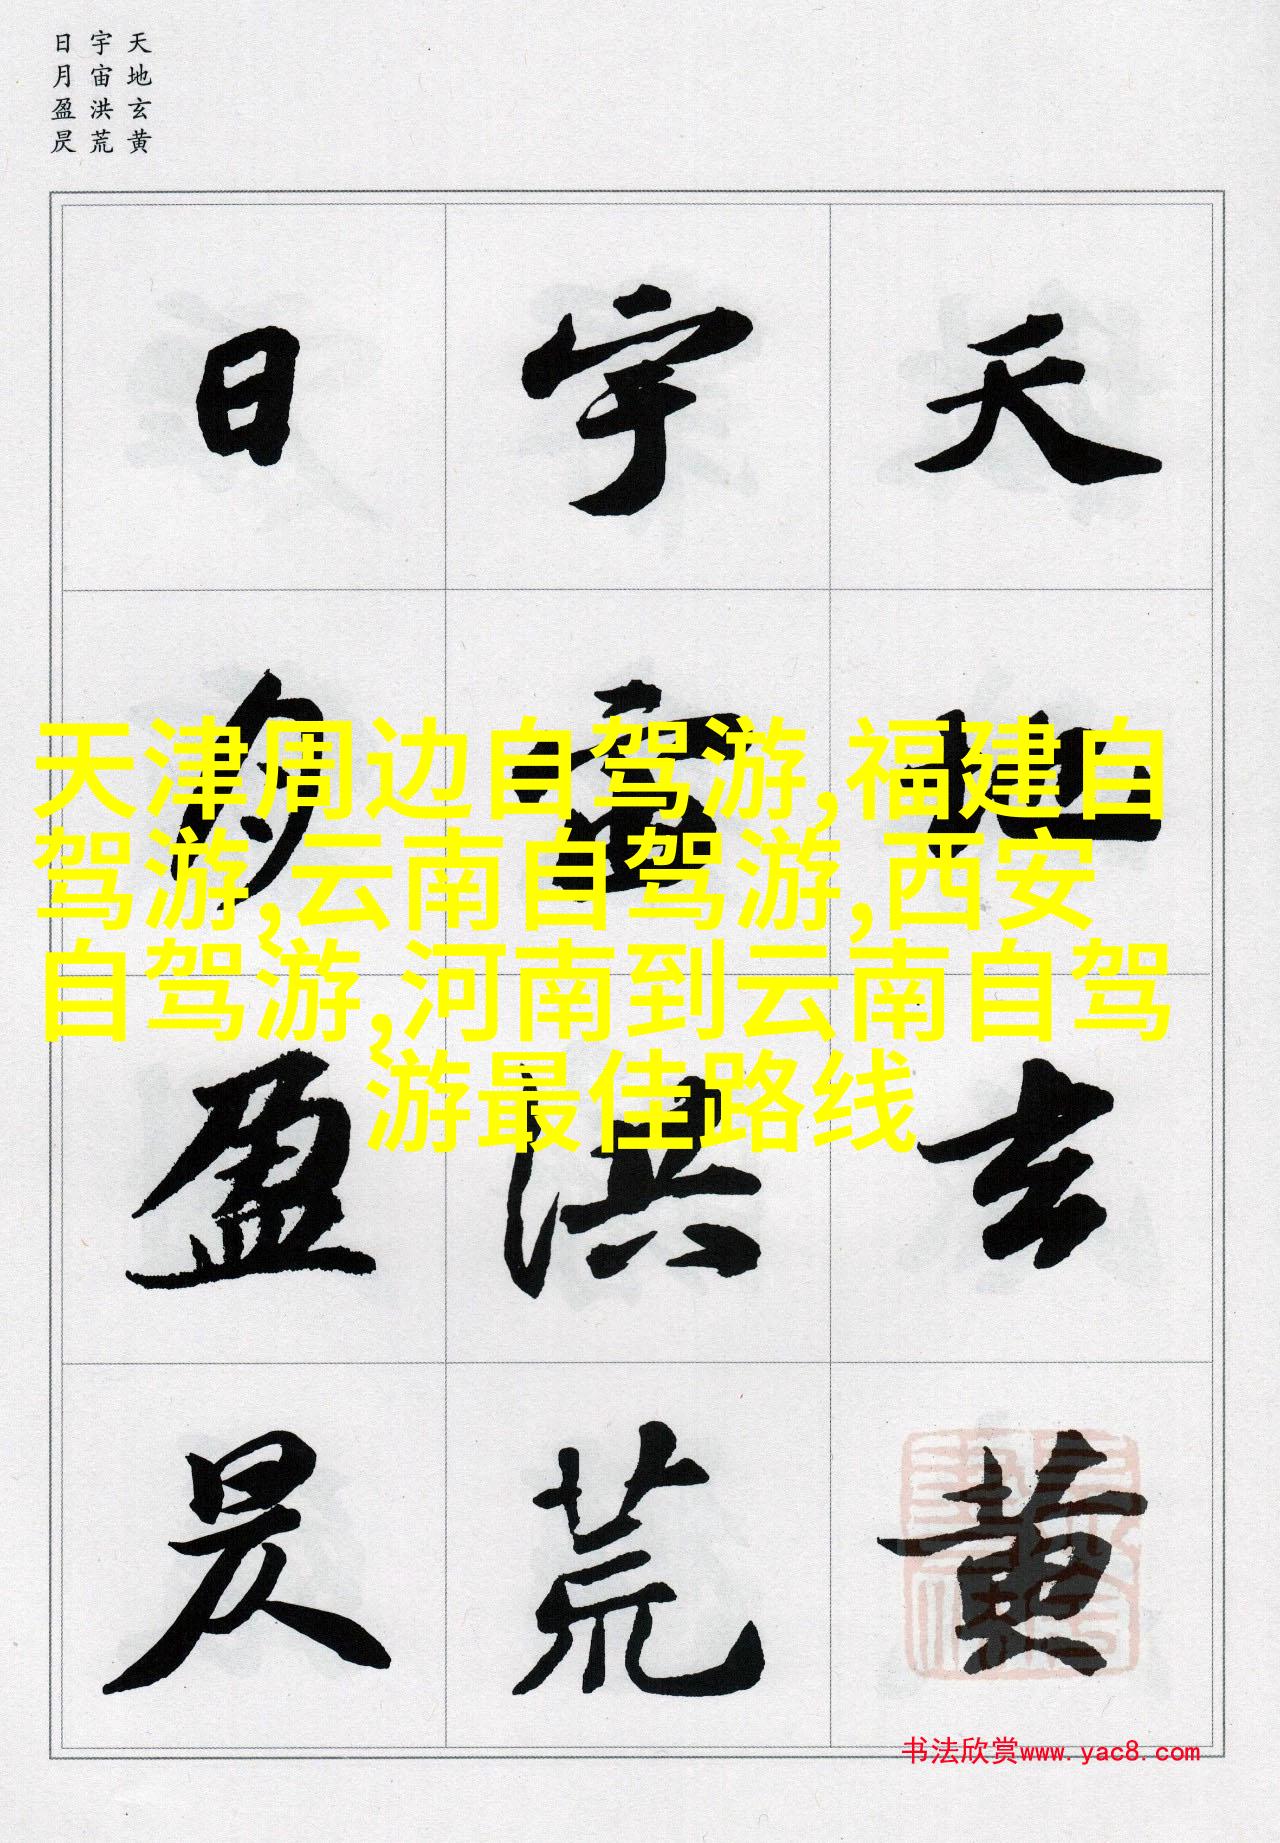 天地玄黄
宇宙洪荒
日月盈昃
天地玄黄
宇宙洪荒
日月盈昃
天津周边自驾游,福建自
驾游,云南自驾游,西安
自驾游,河南到云南自驾
游最佳路线
书法欣赏www.yac8.com